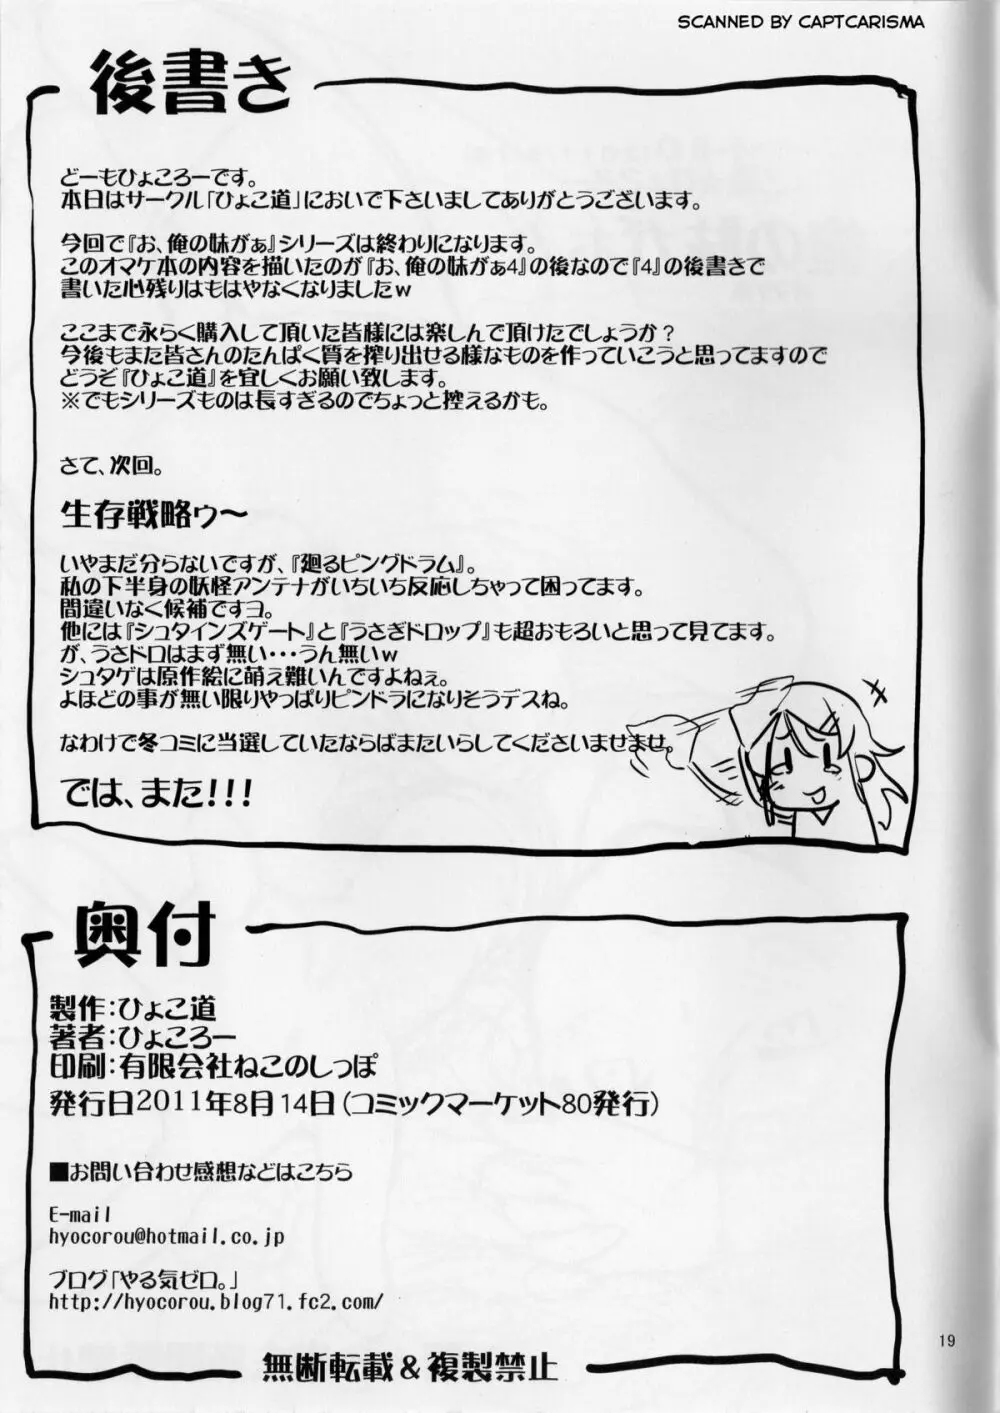 SCANNED BY CAPTCARISMA
後書き
どーもひょころーです。
本日はサークル「ひょこ道」においで下さいましてありがとうございます。
今回で『お、俺の妹がぁ』シリーズは終わりになります。
このオマケ本の内容を描いたのが『お、俺の妹がぁ4』の後なので『4』の後書きで
書いた心残りはもはやなくなりましたｗ
ここまで永らく購入して頂いた皆様には楽しんで頂けたでしょうか？
今後もまた皆さんのたんぱく質を搾り出せる様なものを作っていこうと思ってますので
どうぞ『ひょこ道』を宜しくお願い致します。
※でもシリーズものは長すぎるのでちょっと控えるかも。
さて、次回。
生存戦略ゥ～
いやまだ分らないですが、『廻るピングドラム』。
私の下半身の妖怪アンテナがいちいち反応しちゃって困ってます。
間違いなく候補ですヨ。
他には『シュタインズゲート』と『うさぎドロップ』も超おもろいと思って見てます。
が、うさドロはまず無い・・・うん無いｗ
シュタゲは原作絵に萌え難いんですよねぇ。
よほどの事が無い限りやっぱりピンドラになりそうデスね。
なわけで冬コミに当選していたならばまたいらしてくださいませませ。
では、また！！！
奥付
製作：ひょこ道
著者：ひょころー
印刷：有限会社ねこのしっぽ
発行日2011年8月14日（コミックマーケット80発行）
■お問い合わせ感想などはこちら
E-mail
hyocorou@hotmail.co.jp
ブログ「やる気ゼロ。」
http://hyocorou.blog71.fc2.com/
無断転載＆複製禁止
19